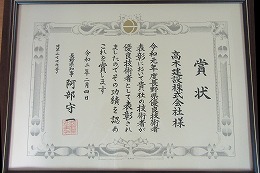 賞状
高木建設株式会社様
令和元年度長野県優良技術者
表彰において貴社の技術者が
優良技術者として表彰され
ましたのでその功績を認め
これを賞します
令和二年二月四日
長野県知事 阿部守一